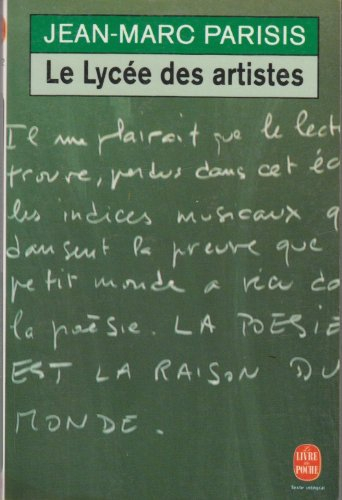 JEAN-MARC PARISIS
Le Lycée des artistes
Il me plairait que le lect
trouve, perdus dans cet éc
les indices musicaux q
dansent la preuve que
petit monde a vécu da
la poésie. LA POESIE
EST LA RAISON DU
MONDE.
LE LIVRE DE POCHE
Texte intégral